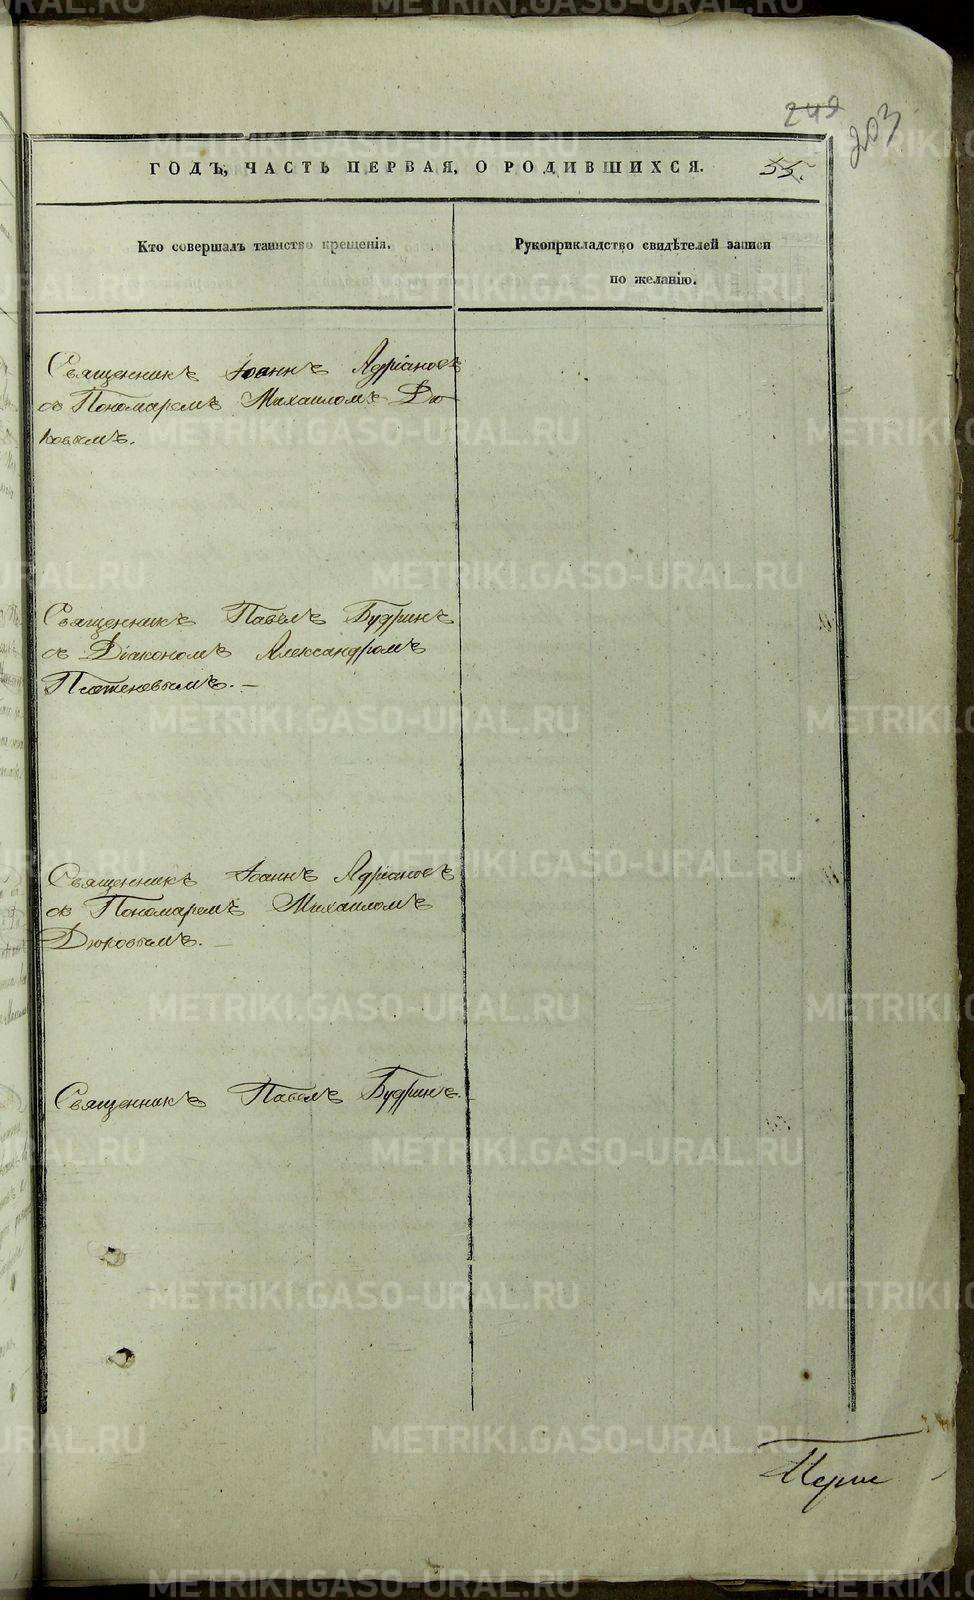 249
203
ГОДЪ, ЧАСТЬ ПЕРВАЯ, О РОДИВШИХСЯ. 55.
Кто совершалъ таинство крещенія.
Рукоприкладство свидѣтелей записи
по желанію.
Священникъ Іоаннъ Адріановъ
съ Пономаремъ Михаиломъ Дю-
ковымъ.
Священникъ Павелъ Будринъ
съ Діакономъ Александромъ
Плотниковымъ. —
Священникъ Іоаннъ Адріановъ
съ Пономаремъ Михаиломъ
Дюковымъ. —
Священникъ Павелъ Будринъ.
METRIKI.GASO-URAL.RU